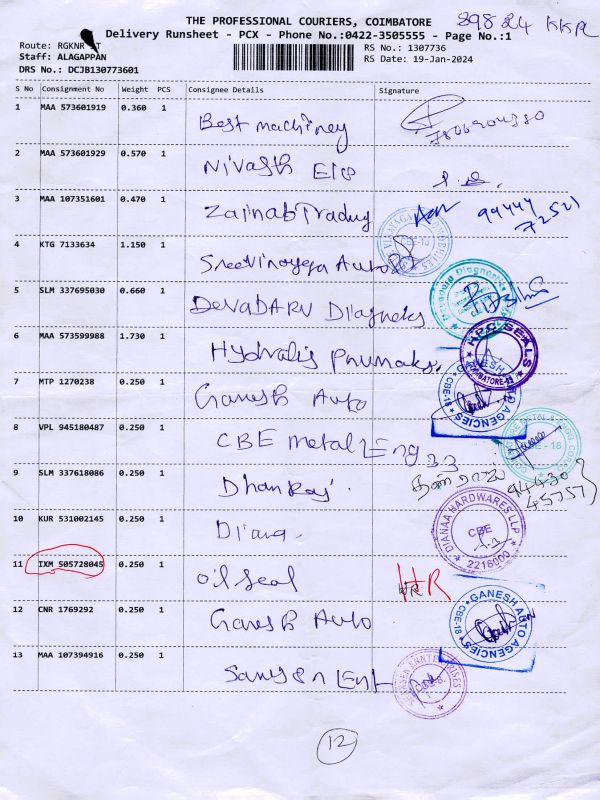 THE PROFESSIONAL COURIERS, COIMBATORE
39824 KKPL
Delivery Runsheet - PCX - Phone No.:0422-3505555 - Page No.:1
Route: RGKNR
Staff: ALAGAPPAN
DRS No.: DCJB130773601
RS No.: 1307736
RS Date: 19-Jan-2024
S No Consignment No Weight PCS Consignee Details Signature
1 MAA 573601919 0.360 1 Best machiney
2 MAA 573601929 0.570 1 Nivasth
3 MAA 107351601 0.470 1 Zainab Trading 99444
72521
4 KTG 7133634 1.150 1 Sree Vinayaga Auto CBE-18
5 SLM 337695030 0.660 1 DEVADARU Diagnoks
6 MAA 573599988 1.730 1 Hydralis Pnumaks. H.P.C SEALS COIMBATORE
7 MTP 1270238 0.250 1 Ganesh Auto GANESH AUTO AGENCIES CBE-18
8 VPL 945180487 0.250 1 CBE metal Engg CBE - 18
9 SLM 337618086 0.250 1 Dhanraj 94430
45757
10 KUR 531002145 0.250 1 Diana DIANAA HARDWARES LLP CBE 2216000
11 IXM 505728045 0.250 1 oil seal HR
12 CNR 1769292 0.250 1 Ganesh Auto GANESH AUTO AGENCIES CBE-18
13 MAA 107394916 0.250 1 Sansen Ent
12